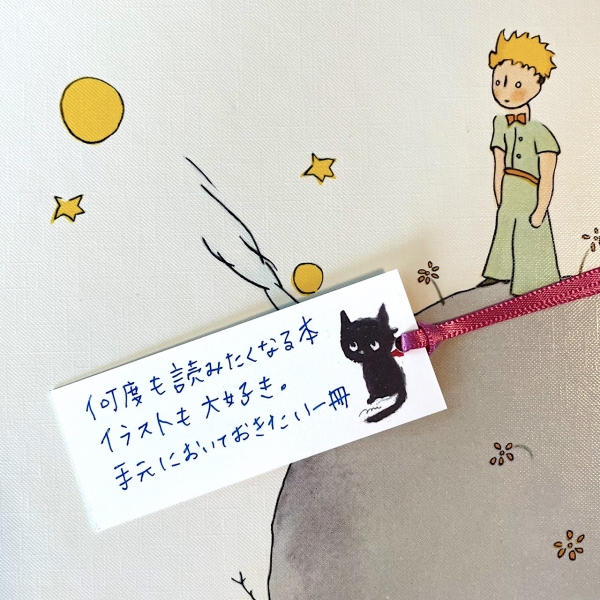 何度も読みたくなる本
イラストも大好き。
手元においておきたい一冊